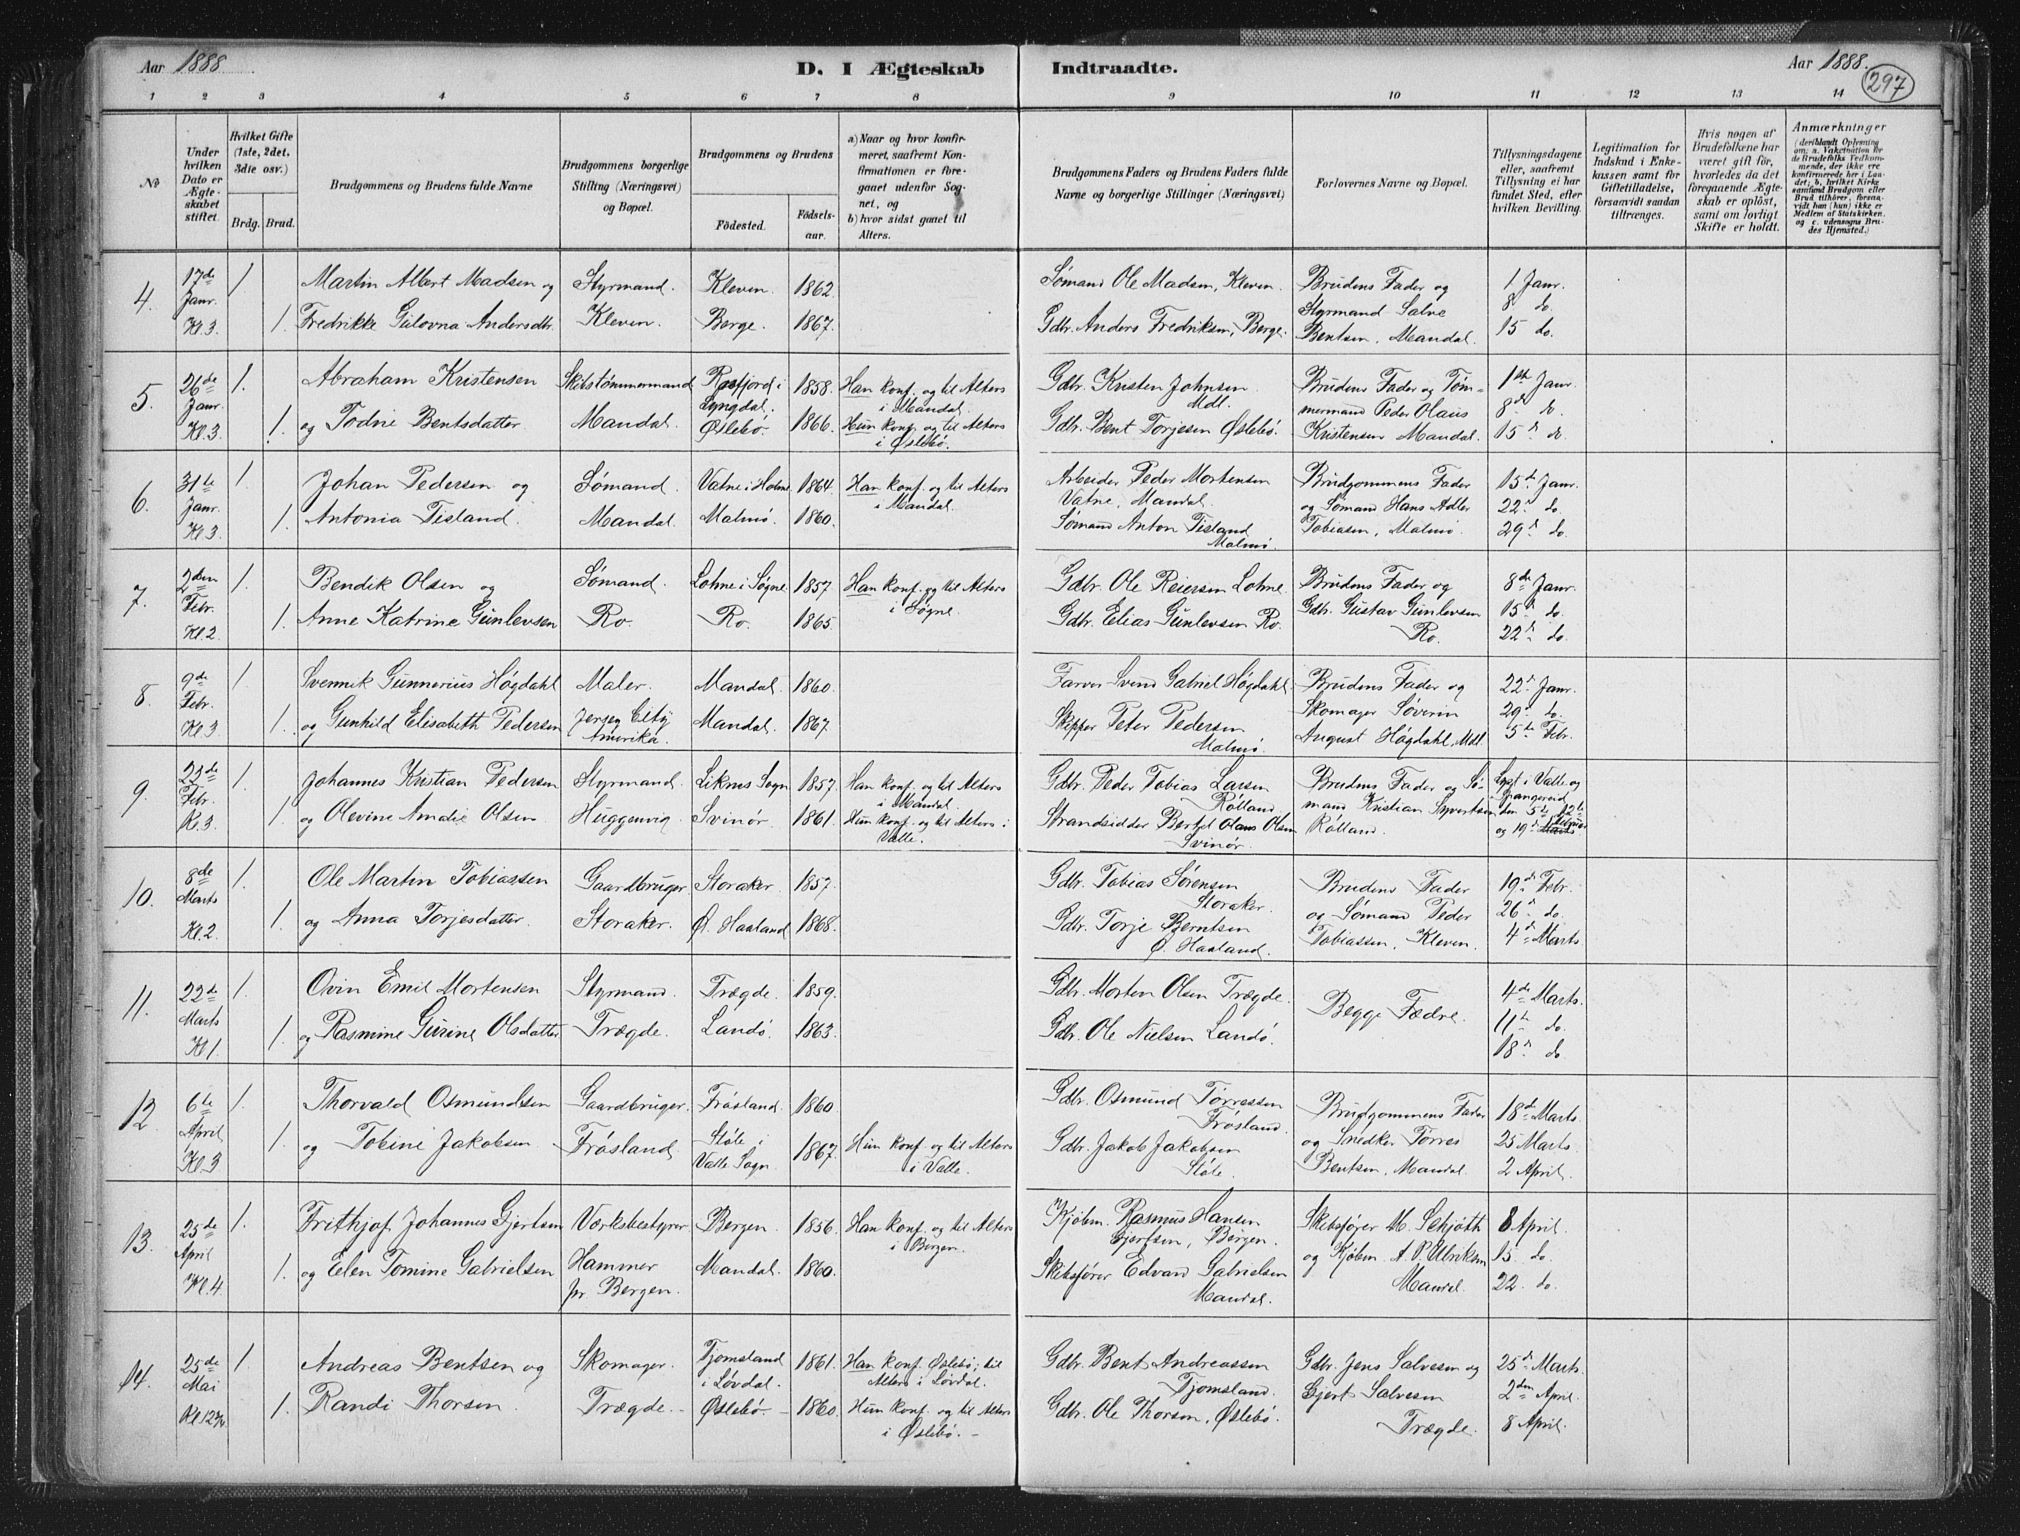 Aar 1888. D. I Ægteskab Indtraadte. Aar 1888.
297
1 2 3 4 5 6 7 8 9 10 11 12 13 14
No
Under hvilken Dato er Ægteskabet stiftet.
Hvilket Gifte (1ste, 2det, 3die osv.)
Brdg. Brud.
Brudgommens og Brudens fulde Navne
Brudgommens borgerlige Stilling (Næringsvei) og Bopæl.
Brudgommens og Brudens
Fødested.
Fødselsaar.
a) Naar og hvor konfirmeret, saafremt Konfirmationen er foregaaet udenfor Sognet, og
b) hvor sidst gaaet til Alters.
Brudgommens Faders og Brudens Faders fulde Navne og borgerlige Stillinger (Næringsvei)
Forlovernes Navne og Bopæl.
Tillysningsdagene eller, saafremt Tillysning ei har fundet Sted, efter hvilken Bevilling.
Legitimation for Indskud i Enkekassen samt for Giftetilladelse, forsaavidt saadan tiltrænges.
Hvis nogen af Brudefolkene har været gift før, hvorledes da det foregaaende Ægteskab er opløst, samt om lovligt Skifte er holdt.
Anmærkninger
(deriblandt Oplysning om: a. Vakcination for de Brudefolks Vedkommende, der ikke ere konfirmerede her i Landet; b. hvilket Kirkesamfund Brudgom eller Brud tilhører, forsaavidt han (hun) ikke er Medlem af Statskirken, og c. udensogns Brudes Hjemsted.)
4. 17de Janr. Kl. 3 1 Martin Albert Madsen og Styrmand. Kleven. 1862. Sømand Ole Madsen, Kleven. Brudens Fader og 1 Janr.
1. Fredrikke Gulovna Andersdtr. Kleven. Berge. 1867. Gdbr. Anders Fredriksen, Berge. Styrmand Salve 8 do.
Bentsen, Mandal. 15 do.
5. 26de Janr. Kl. 3 1. Abraham Kristensen Skibstømmermand Rosfjord i Lyngdal. 1858. Han konf. og til Alters i Mandal. Gdbr. Kristen Johnsen Mdl. Brudens Fader og Tøm- 1ste Janr.
1. og Todne Bentsdatter Mandal. Øslebø. 1866. Hun konf. og til Alters i Øslebø. Gdbr. Bent Torjesen Øslebø. mermand Peder Olaus 8de do.
Kristensen Mandal. 15 do.
6. 31te Janr. Kl. 3 1 Johan Pedersen og Sømand. Vatne i Holme 1864. Han konf. og til Alters i Mandal. Arbeider Peder Mortensen Vatne, Mandal. Brudgommens Fader 15de Janr.
1. Antonia Tisland. Mandal. Malmø. 1860. Sømand Anton Tisland Malmø. og Sømand Hans Adler 22 do.
Tobiasen, Malmø. 29 do.
7. 2den Febr. Kl. 2 1. Bendik Olsen og Sømand. Lohne i Søgne. 1857. Han konf. og til Alters i Søgne. Gdbr. Ole Reiersen Lohne. Brudens Fader og 8de Janr.
1. Anne Katrine Gunlevsen Ro. Ro. 1865. Gdbr. Elias Gunlevsen Ro. Gdbr. Gustav Gunlevsen 15 do.
Ro. 22 do.
8. 9de Febr. Kl. 3 1 Svennik Gunnerius Høgdahl Maler. Mandal. 1860. Farver Svend Gabriel Høgdahl. Brudens Fader og 22 Janr.
1. og Gunhild Elisabeth Pedersen Jersey City Amerika. Mandal. 1867. Skipper Peter Pedersen Malmø. Skomager Søverin 29 do.
August Høgdahl, Mdl. 5te Febr.
9. Febr. Kl. 3 1. Johannes Kristian Pedersen Styrmand. Liknes Sogn 1857. Han konf. og til Alters i Mandal. Gdbr. Peder Tobias Larsen Rølland Brudens Fader og Sø- Lyst i Valle og Spangereid
1. og Olevine Amalie Olsen Huggenvig Svinør. 1861. Hun konf. og til Alters i Valle. Strandsidder Bertel Olaus Olsen Svinør. mand Kristian Syvertsen den 5te 12te
Rølland. og 19 Februar
10. 8de Marts Kl. 2 1. Ole Martin Tobiassen Gaardbruger. Storaker. 1857. Gdbr. Tobias Sørensen Storaker. Brudens Fader 19 Febr.
1. og Anna Torjesdatter Storaker. Ø. Haaland 1868. Gdbr. Torje Berntsen Ø. Haaland. og Sømand Peder 26 do.
Tobiassen, Kleven. 4 Marts
11. 22de Marts Kl 1 1. Ovin Emil Mortensen Styrmand. Trægde. 1859. Gdbr. Morten Olsen Trægde. Begge Fædre. 4de Marts.
1. og Rasmine Gurine Olsdatter Trægde. Landø. 1863. Gdbr. Ole Nielsen Landø. 11te do.
18 do
12. 6te April Kl. 3 1. Thorvald Osmundsen Gaardbruger. Frøsland. 1860. Gdbr. Osmund Tørressen Frøsland. Brudgommens Fader 18de Marts.
1. og Tobine Jakobsen Frøsland. Støle i Valle Sogn. 1867. Hun konf. og til Alters i Valle. Gdbr. Jakob Jakobsen Støle. og Snedker Tørres 25 Marts.
Bentsen, Mandal. 2 April.
13. 25de April Kl. 4 1. Frithjof Johannes Gjertsen Værksbestyrer Bergen. 1856. Han konf. og til Alters i Bergen. Kjøbm. Rasmus Hansen Gjertsen, Bergen. Skibsfører M. Schjøth 8 April.
1. og Elen Tomine Gabrielsen Hammer pr. Bergen. Mandal. 1860. Skibsfører Edvard Gabrielsen Mandal. og Kjøbm. A. P. Ulriksen 15. do.
Mandal. 22. do.
14. 25de Mai 1. Andreas Bentsen og Skomager. Tjomsland i Løvdal. 1861. Han konf. Øslebø; til Alters i Løvdal. Gdbr. Bent Andreassen Tjomsland. Gdbr. Jens Salvesen og 25 Marts.
1. Randi Thorsen. Trægde. Øslebø. 1860. Hun konf. og til Alters i Øslebø. Gdbr. Ole Thorsen, Øslebø. Gjert Salvesen 2den April.
Trægde. 8 April.